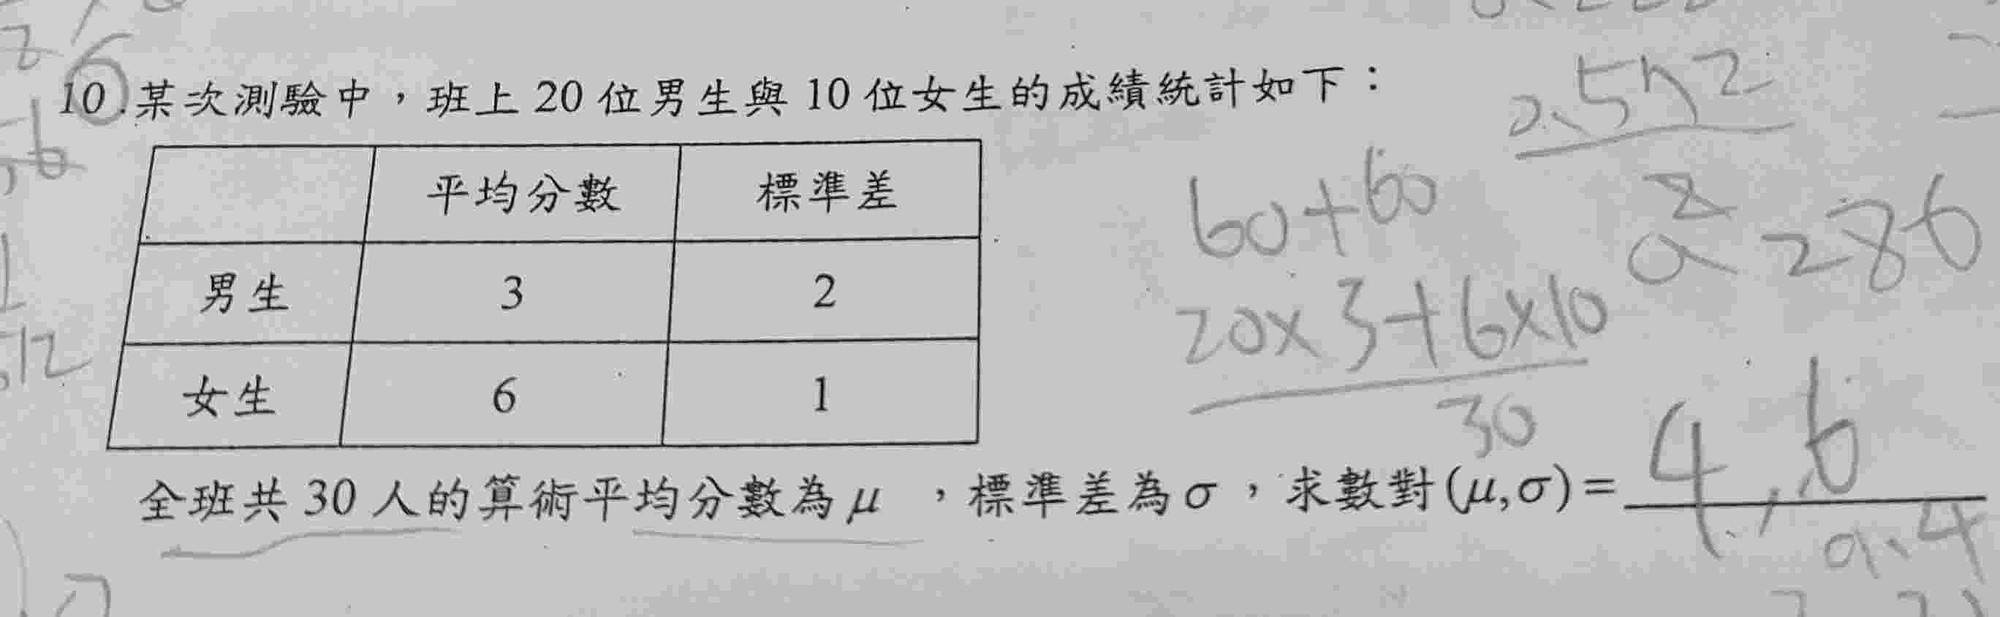 10.某次測驗中，班上 20 位男生與 10 位女生的成績統計如下：
平均分數 標準差
男生 3 2
女生 6 1
全班共 30 人的算術平均分數為 μ ，標準差為 σ，求數對(μ,σ)=
4,6
60+60
20×3+6×10
30
286